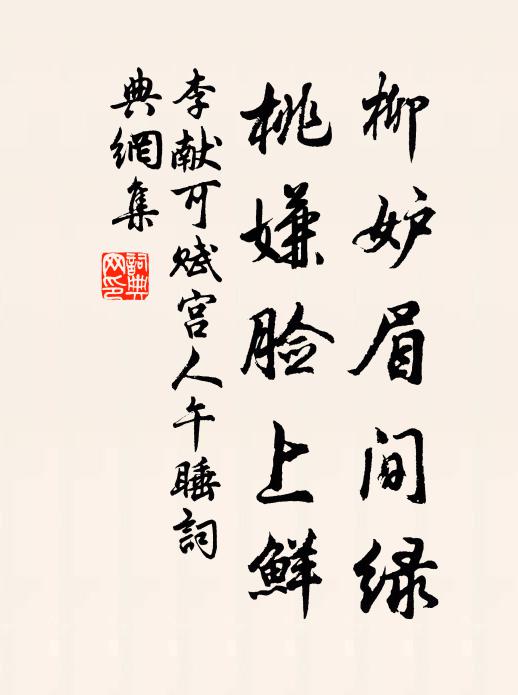 柳妒眉间绿
桃嫌脸上鲜
李献可赋宫人午睡詞
典網集
詞典
网印